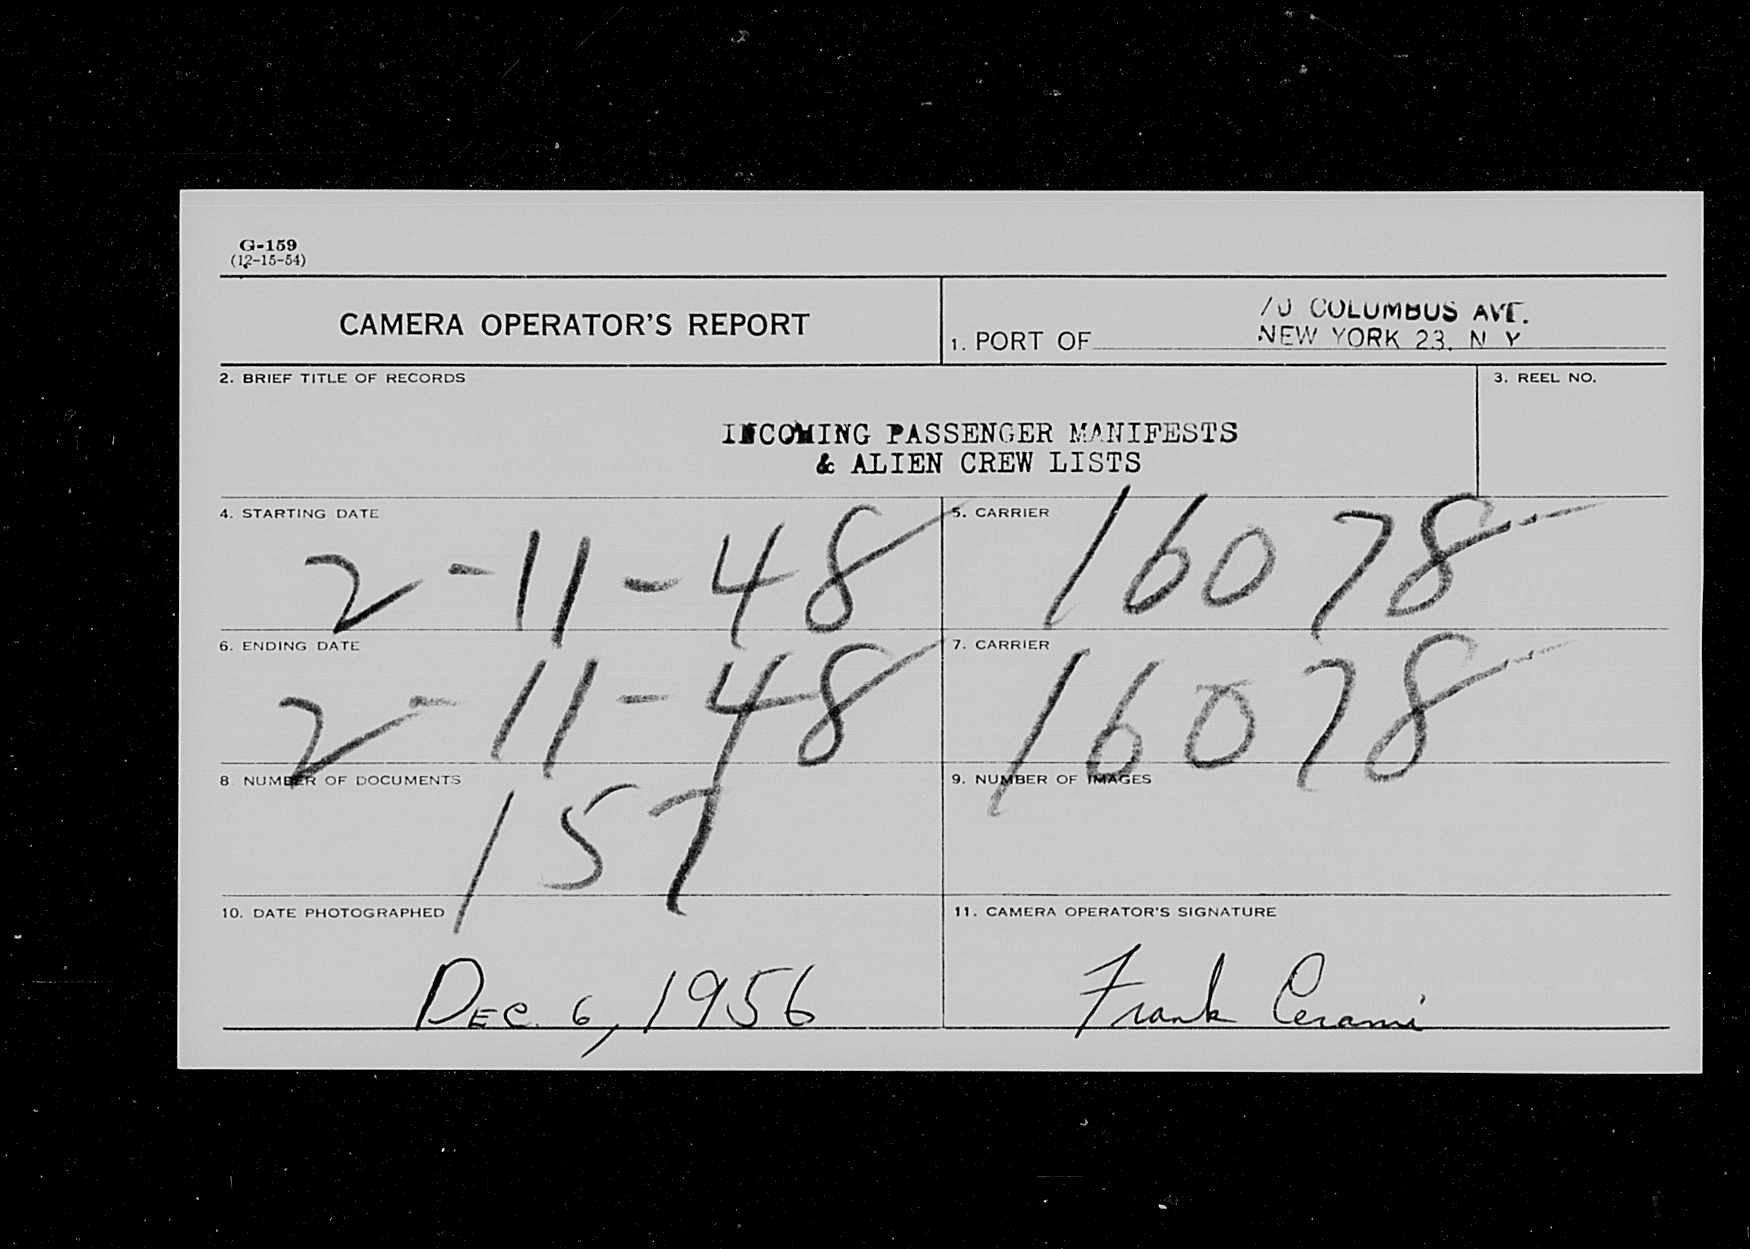 G-159
(12-15-54)
CAMERA OPERATOR'S REPORT
70 COLUMBUS AVE.
1. PORT OF NEW YORK 23, N Y
2. BRIEF TITLE OF RECORDS
3. REEL NO.
INCOMING PASSENGER MANIFESTS
& ALIEN CREW LISTS
4. STARTING DATE
2-11-48
5. CARRIER
16078
6. ENDING DATE
2-11-48
7. CARRIER
16078
8. NUMBER OF DOCUMENTS
157
9. NUMBER OF IMAGES
10. DATE PHOTOGRAPHED
Dec. 6, 1956
11. CAMERA OPERATOR'S SIGNATURE
Frank Cerami